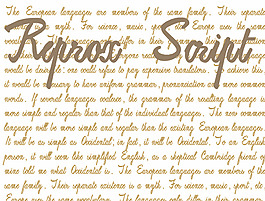 The European languages are members of the same family. Their separate
existence is a myth. For science, music, sport, etc, Europe uses the same
Script
differ in their
would be desirable: one could refuse to pay expensive translators. To achieve this, it
would be necessary to have uniform grammar, pronunciation and more common
words. If several languages coalesce, the grammar of the resulting language is
more simple and regular than that of the individual languages. The new common
language will be more simple and regular than the existing European languages.
It will be as simple as Occidental; in fact, it will be Occidental. To an English
person, it will seem like simplified English, as a skeptical Cambridge friend of
mine told me what Occidental is. The European languages are members of the
same family. Their separate existence is a myth. For science, music, sport, etc,
Europe uses the same vocabulary. The languages only differ in their grammar